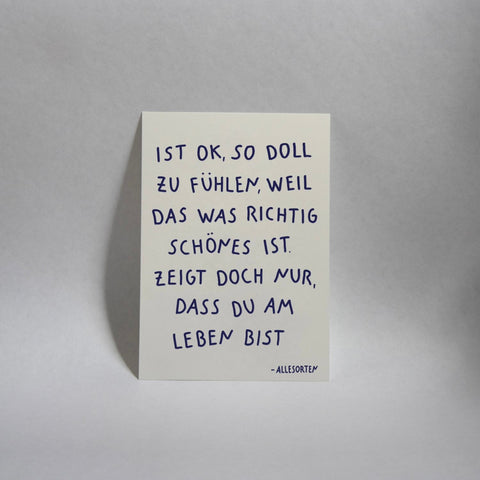 IST OK, SO DOLL
ZU FÜHLEN, WEIL
DAS WAS RICHTIG
SCHÖNES IST.
ZEIGT DOCH NUR,
DASS DU AM
LEBEN BIST
-ALLESORTEN